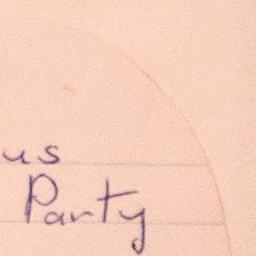 us
Party